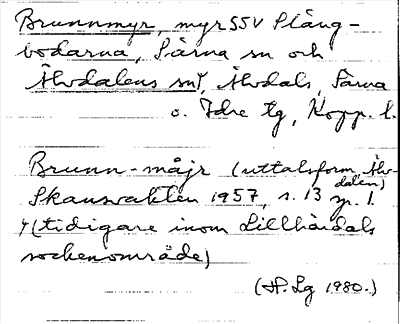 Brunnmyr, myr SSV Plång-
bodarna, Särna sn och
Älvdalens sn Y, Älvdals, Särna
o. Idre tg, Kopp. l.
Brunn-måjr (uttalsform, Älv-
dalen)
Skansvakten 1957, s. 13 sp. 1.
Y (tidigare inom Lillhärdals
sockenområde)
(H. Lg 1980.)